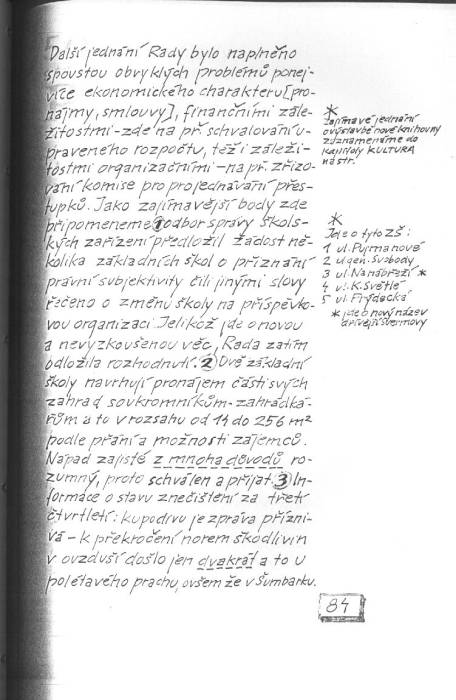 Další jednání Rady bylo naplněno
spoustou obvyklých problémů ponej-
více ekonomického charakteru [pro-
nájmy, smlouvy], finančními zále-
žitostmi - zde na př. schvalování u-
praveného rozpočtu, též i záleži-
tostmi organizačními - např. zřizo-
vání komise pro projednávání přes-
tupků. Jako zajímavější body zde
připomeneme ① odbor správy škols-
kých zařízení předložil žádost ně-
kolika základních škol o přiznání
právní subjektivity čili jinými slovy
řečeno o změnu školy na příspěvko-
vou organizaci. Jelikož jde o novou
a nevyzkoušenou věc, Rada zatím
odložila rozhodnutí. ② Dvě základní
školy navrhují pronájem části svých
zahrad soukromníkům - zahrádká-
řům a to v rozsahu od 14 do 256 m²
podle přání a možností zájemců.
Nápad zajisté z mnoha důvodů ro-
zumný, proto schválen a přijat. ③ In-
formace o stavu znečištění za třetí
čtvrtletí: kupodivu je zpráva přízni-
vá - k překročení norem škodlivin
v ovzduší došlo jen dvakrát a to u
polétavého prachu, ovšem že v Šumbarku.
*
Zajímavé jednání
o výstavbě nové knihovny
zaznamenáme do
kapitoly KULTURA
na str.
*
Jde o tyto ZŠ:
1 ul. Pujmanové
2 ul. gen. Svobody
3 ul. Na nábřeží *
4 ul. K. Světlé
5 ul. Frýdecká
* jde o nový název
dřívější Švermovy
84